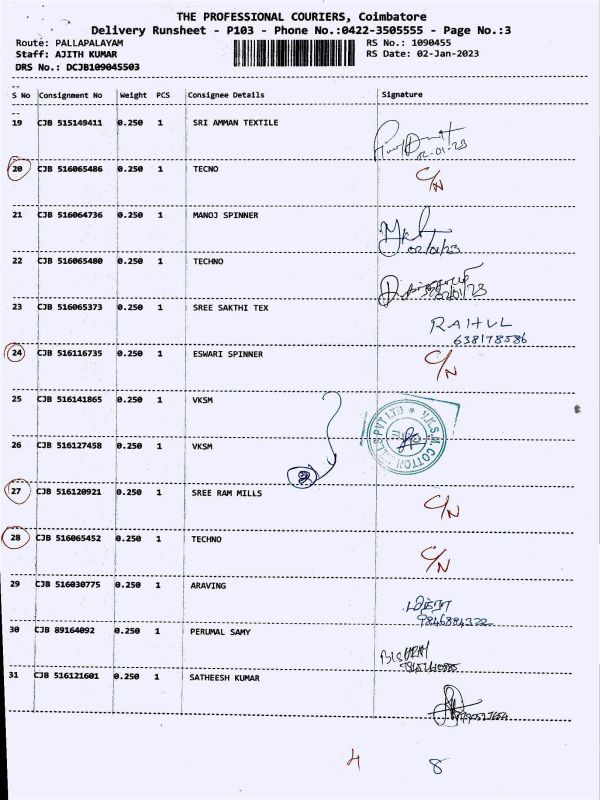 THE PROFESSIONAL COURIERS, Coimbatore
Delivery Runsheet - P103 - Phone No.:0422-3505555 - Page No.:3
Route: PALLAPALAYAM RS No.: 1090455
Staff: AJITH KUMAR RS Date: 02-Jan-2023
DRS No.: DCJB109045503
S No Consignment No Weight PCS Consignee Details Signature
19 CJB 515149411 0.250 1 SRI AMMAN TEXTILE
02-01-23
20 CJB 516065486 0.250 1 TECNO C/N
21 CJB 516064736 0.250 1 MANOJ SPINNER
02/01/23
22 CJB 516065480 0.250 1 TECHNO
02/01/23
23 CJB 516065373 0.250 1 SREE SAKTHI TEX RAHUL
638178586
24 CJB 516116735 0.250 1 ESWARI SPINNER C/N
25 CJB 516141865 0.250 1 VKSM
V.K.S.M. COTTON PVT LTD
26 CJB 516127458 0.250 1 VKSM
2
27 CJB 516120921 0.250 1 SREE RAM MILLS C/N
28 CJB 516065452 0.250 1 TECHNO C/N
29 CJB 516030775 0.250 1 ARAVING
30 CJB 89164092 0.250 1 PERUMAL SAMY
31 CJB 516121601 0.250 1 SATHEESH KUMAR
4 8